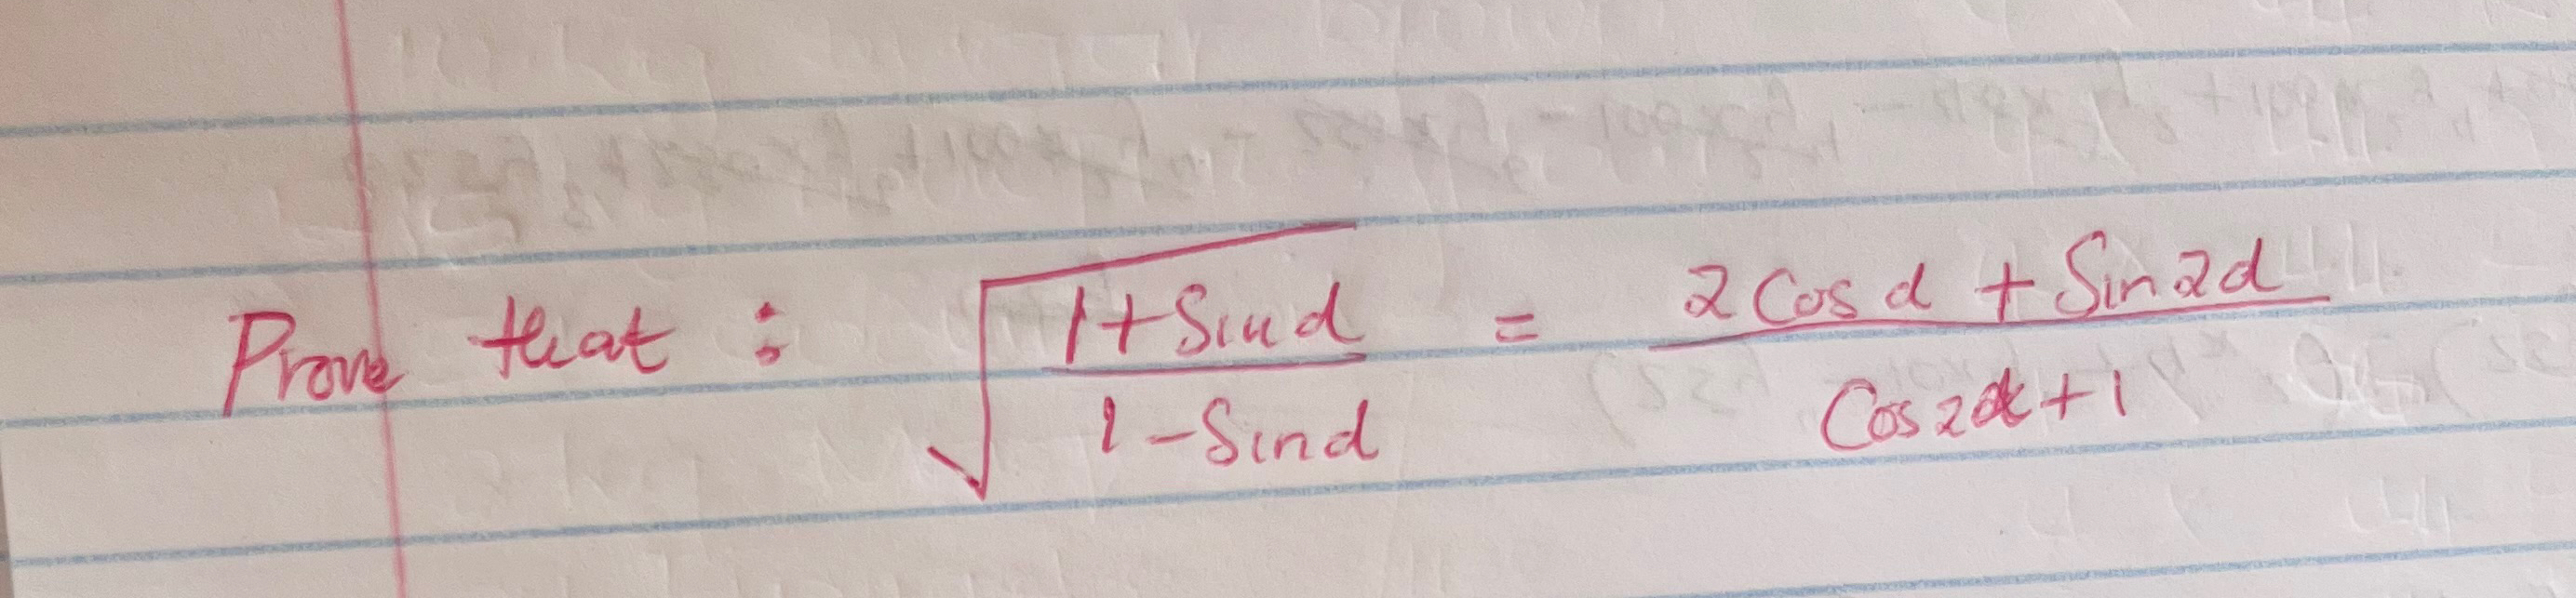 Prove that : √(1+Sin d / 1-Sin d) = 2Cos d + Sin2d / Cos2α+1